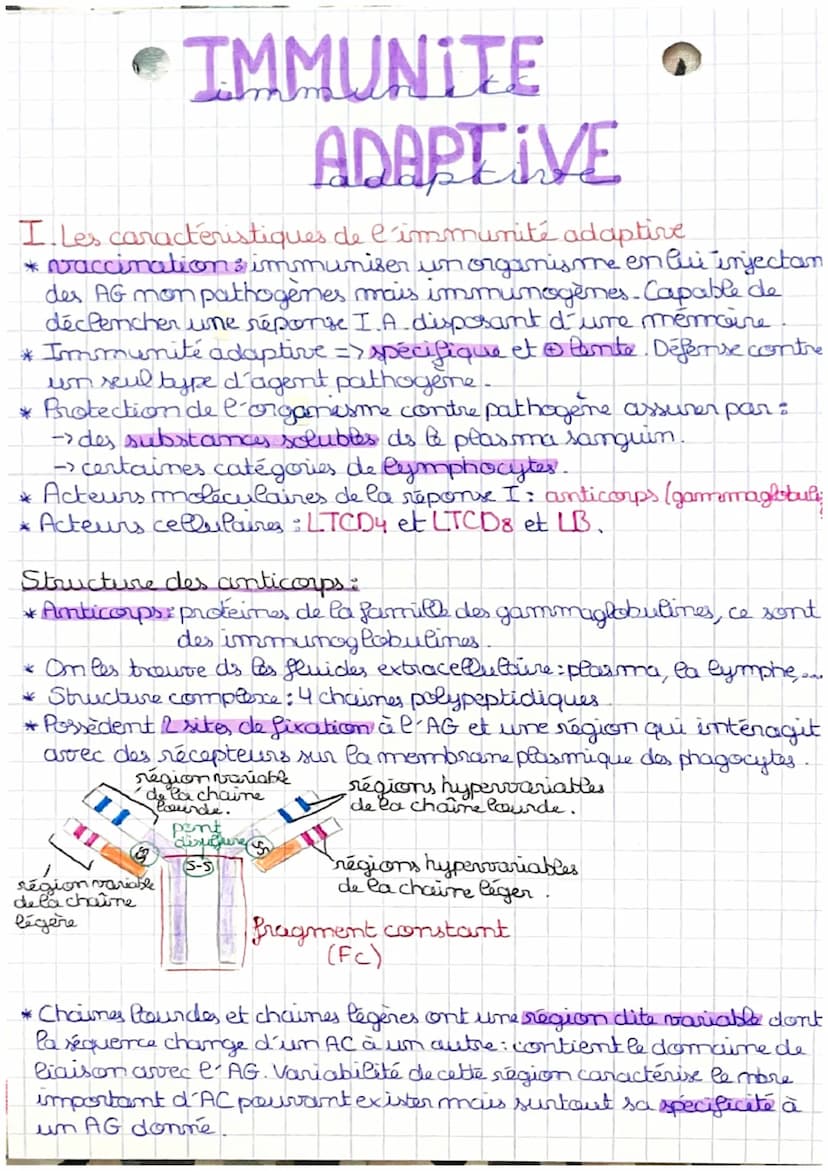 IMMUNITE
immunité
ADAPTIVE
adaptive
I. Les caractéristiques de l'immunité adaptive
* vaccination : immuniser un organisme en lui injectan
des AG non pathogènes mais immunogènes. Capable de
déclencher une réponse I.A. disposant d'une mémoire.
* Immunité adaptive => spécifique et ⊕ lente. Défense contre
un seul type d'agent pathogène.
* Protection de l'organisme contre pathogène assurer par :
-> des substances solubles ds le plasma sanguin.
-> certaines catégories de lymphocytes.
* Acteurs moléculaires de la réponse I : anticorps (gammaglobuli
* Acteurs cellulaires : LTCD4 et LTCD8 et LB.
Structure des anticorps :
* Anticorps : protéines de la famille des gammaglobulines, ce sont
des immunoglobulines.
* On les trouve ds les fluides extracellulaire : plasma, la lymphe,...
* Structure complexe : 4 chaines polypeptidiques
* Possèdent 2 sites de fixation à l'AG et une région qui intéragit
avec des récepteurs sur la membrane plasmique des phagocytes.
région variable
de la chaine
lourde.
régions hypervariables
de la chaîne lourde.
pont
disulfure
S-S
S-S
S-S
région variable
de la chaîne
légère
régions hypervariables
de la chaine léger.
fragment constant
(Fc)
* Chaines lourdes et chaines légères ont une région dite variable dont
la séquence change d'un AC à un autre : contient le domaine de
liaison avec l'AG. Variabilité de cette région caractérise le nbre
important d'AC pouvant exister mais surtout sa spécificité à
un AG donné.